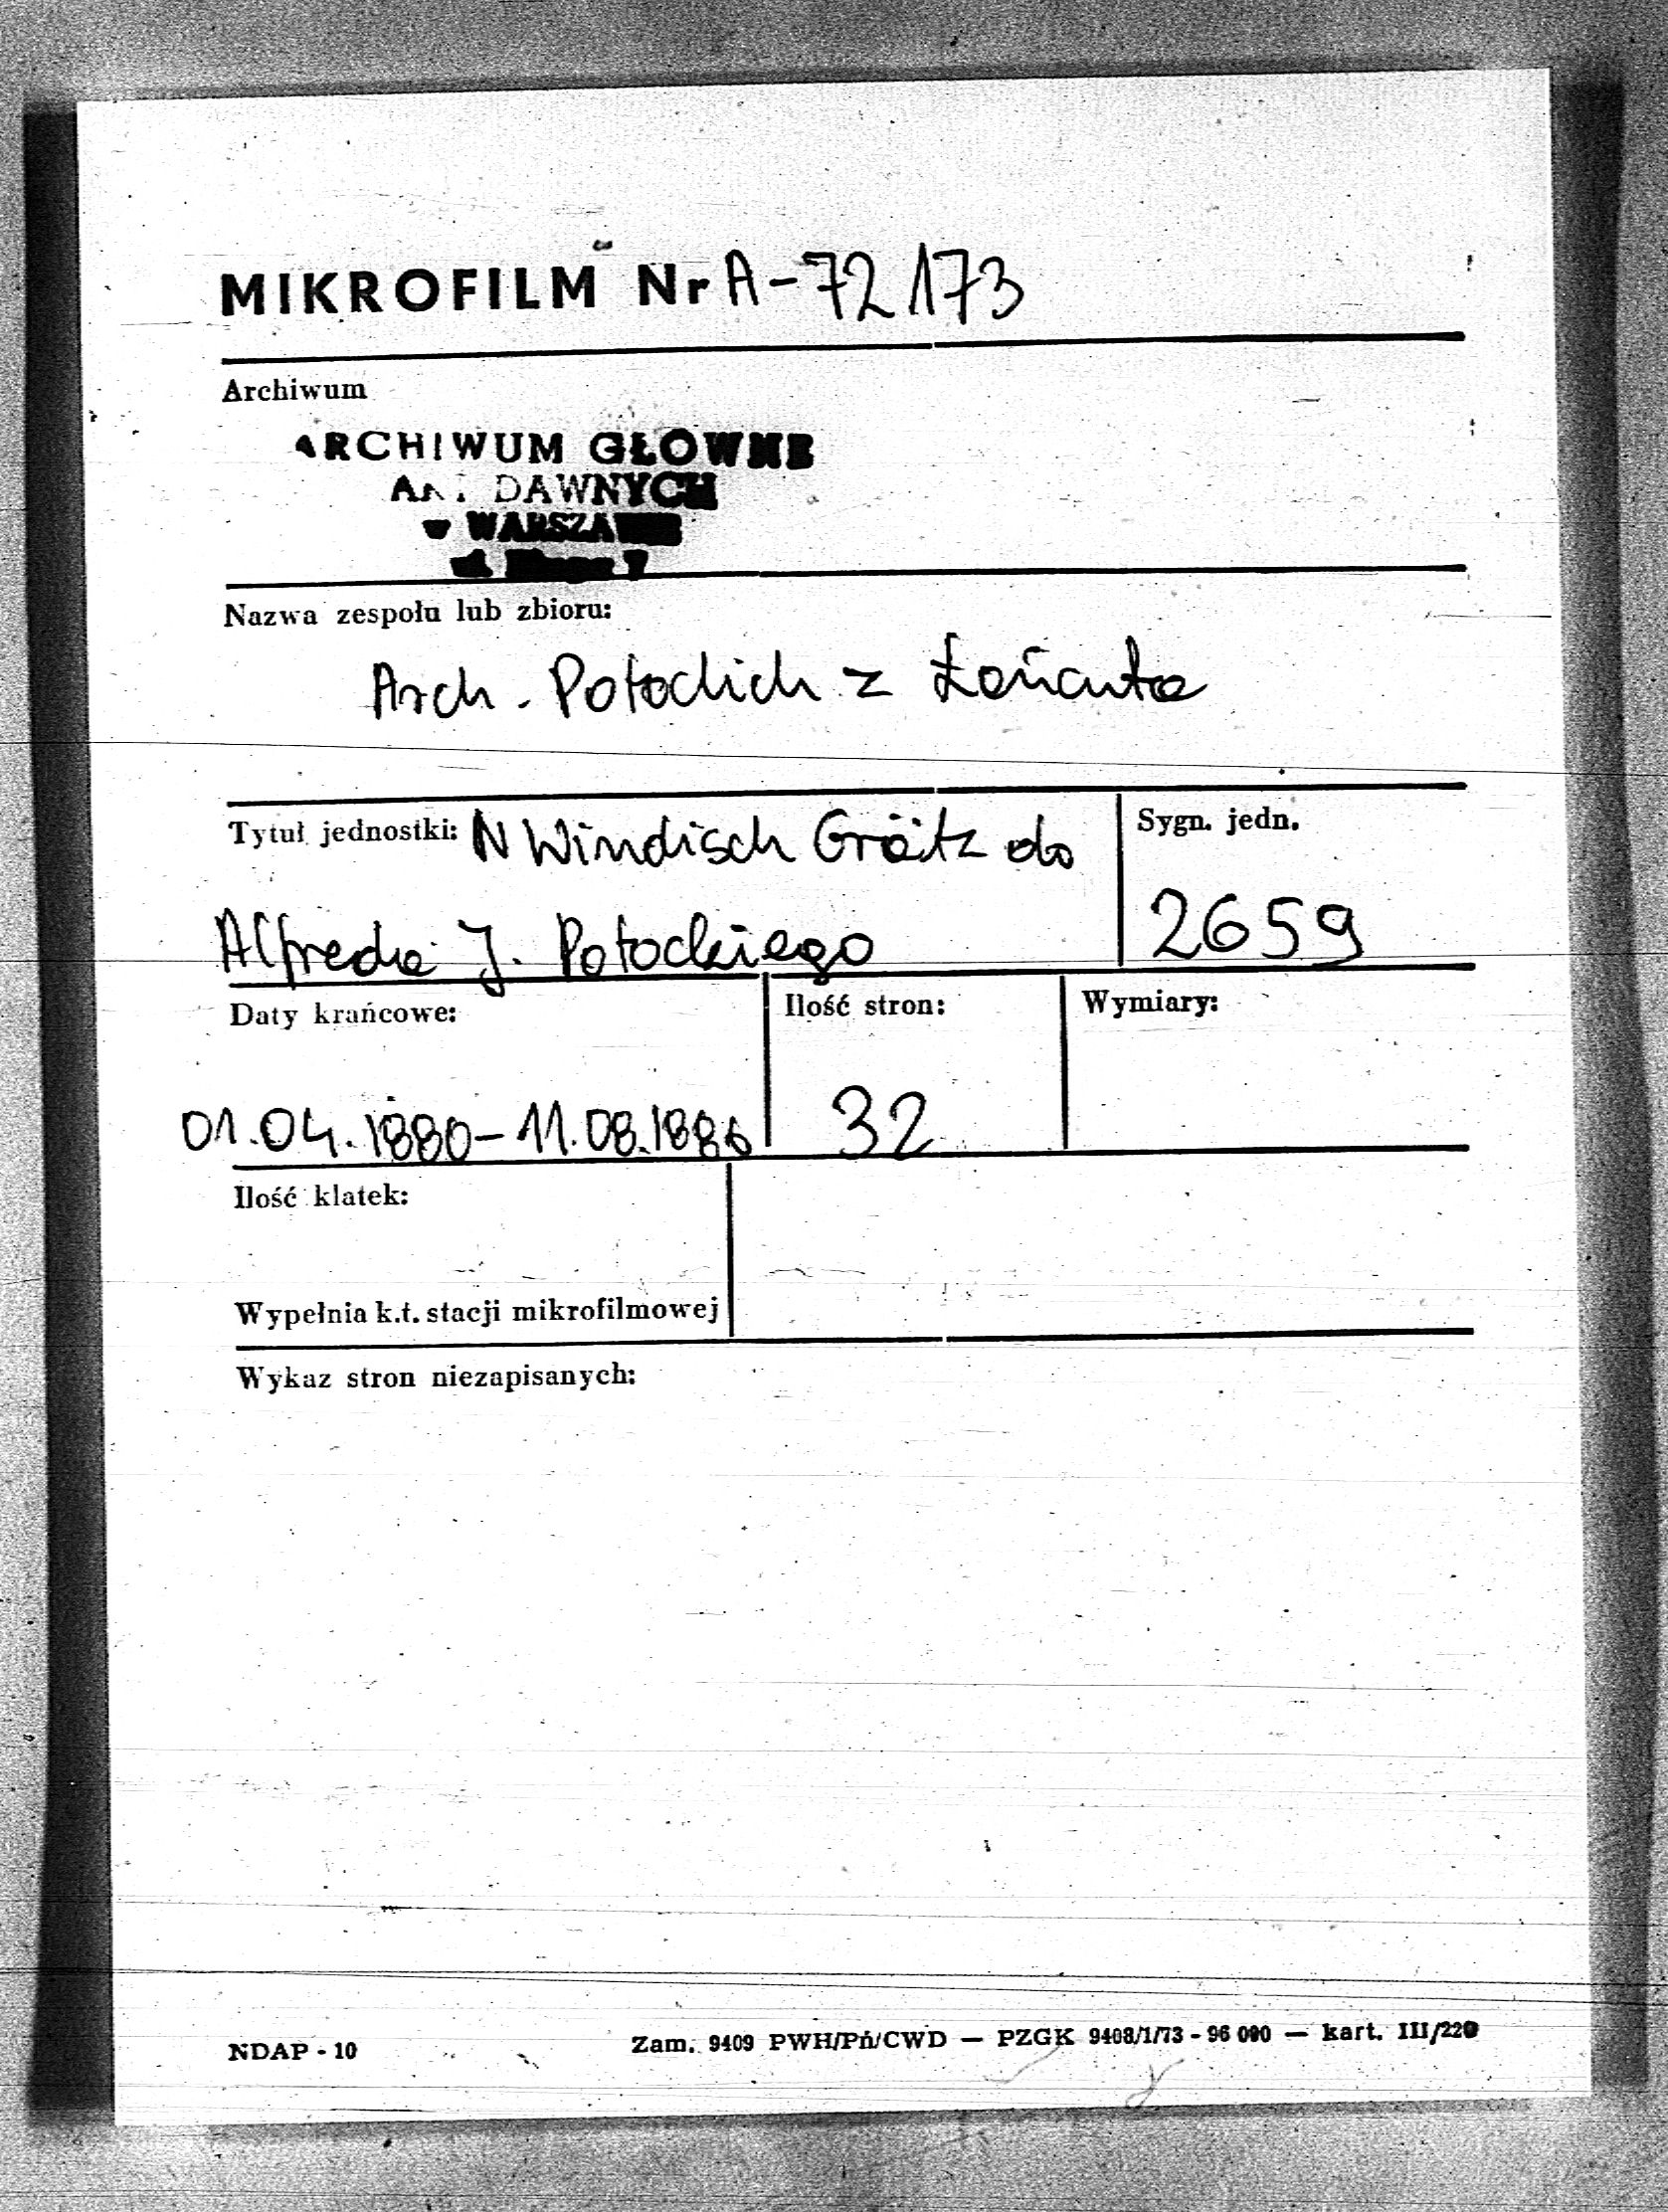 MIKROFILM Nr A-72173
Archiwum
ARCHIWUM GŁOWNE
AKT DAWNYCH
w WARSZAWIE
ul. 7
Nazwa zespołu lub zbioru:
Arch. Potockich z Łańcuta
Tytuł jednostki: N Windisch Grätz do
Alfreda J. Potockiego
Sygn. jedn.
2659
Daty krańcowe:
01.04.1880-11.08.1886
Ilość stron:
32
Wymiary:
Ilość klatek:
Wypełnia k.t. stacji mikrofilmowej
Wykaz stron niezapisanych:
NDAP - 10
Zam. 9409 PWH/Pń/CWD — PZGK 9408/1/73 - 96 000 — kart. III/220